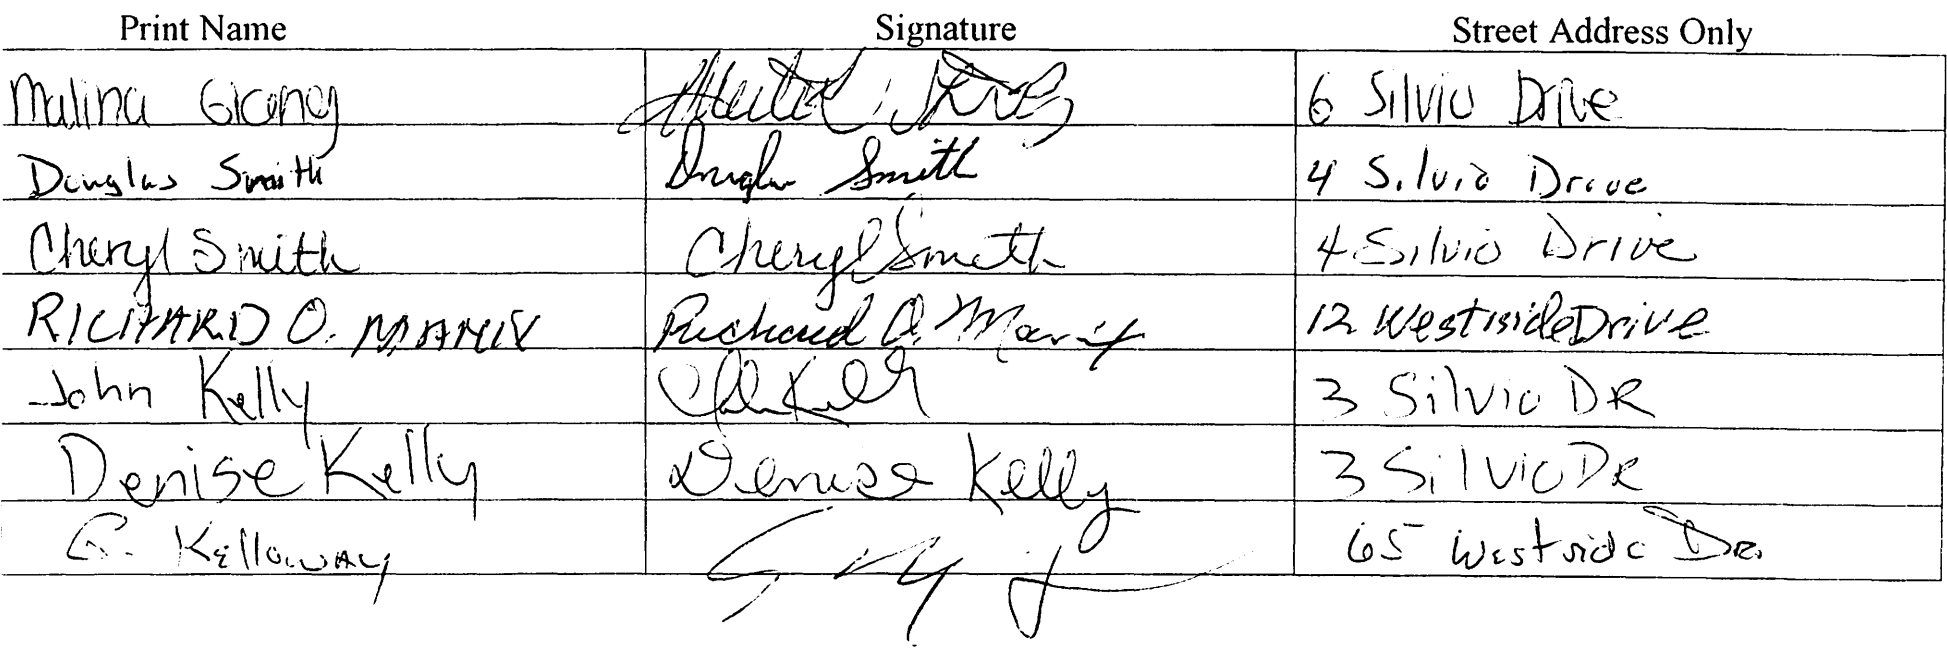 Print Name Signature Street Address Only
Malina 6 Silvio Drive
Douglas Smith Douglas Smith 4 Silvio Drive
Cheryl Smith Cheryl Smith 4 Silvio Drive
RICHARD O. MANIX Richard O. Manix 12 Westside Drive
John Kelly John Kelly 3 Silvio DR
Denise Kelly Denise Kelly 3 Silvio DR
G. Kelloway 65 Westside DR.